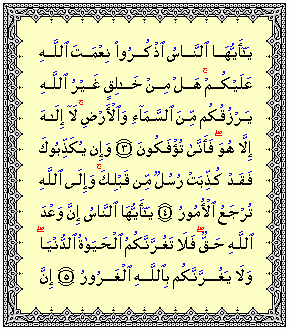 يَـٰٓأَيُّهَا ٱلنَّاسُ ٱذْكُرُوا۟ نِعْمَتَ ٱللَّهِ
عَلَيْكُمْ ۚ هَلْ مِنْ خَـٰلِقٍ غَيْرُ ٱللَّهِ
يَرْزُقُكُم مِّنَ ٱلسَّمَآءِ وَٱلْأَرْضِ ۚ لَآ إِلَـٰهَ
إِلَّا هُوَ ۖ فَأَنَّىٰ تُؤْفَكُونَ ﴿٣﴾ وَإِن يُكَذِّبُوكَ
فَقَدْ كُذِّبَتْ رُسُلٌ مِّن قَبْلِكَ ۚ وَإِلَى ٱللَّهِ
تُرْجَعُ ٱلْأُمُورُ ﴿٤﴾ يَـٰٓأَيُّهَا ٱلنَّاسُ إِنَّ وَعْدَ
ٱللَّهِ حَقٌّ ۖ فَلَا تَغُرَّنَّكُمُ ٱلْحَيَوٰةُ ٱلدُّنْيَا ۖ
وَلَا يَغُرَّنَّكُم بِٱللَّهِ ٱلْغَرُورُ ﴿٥﴾ إِنَّ